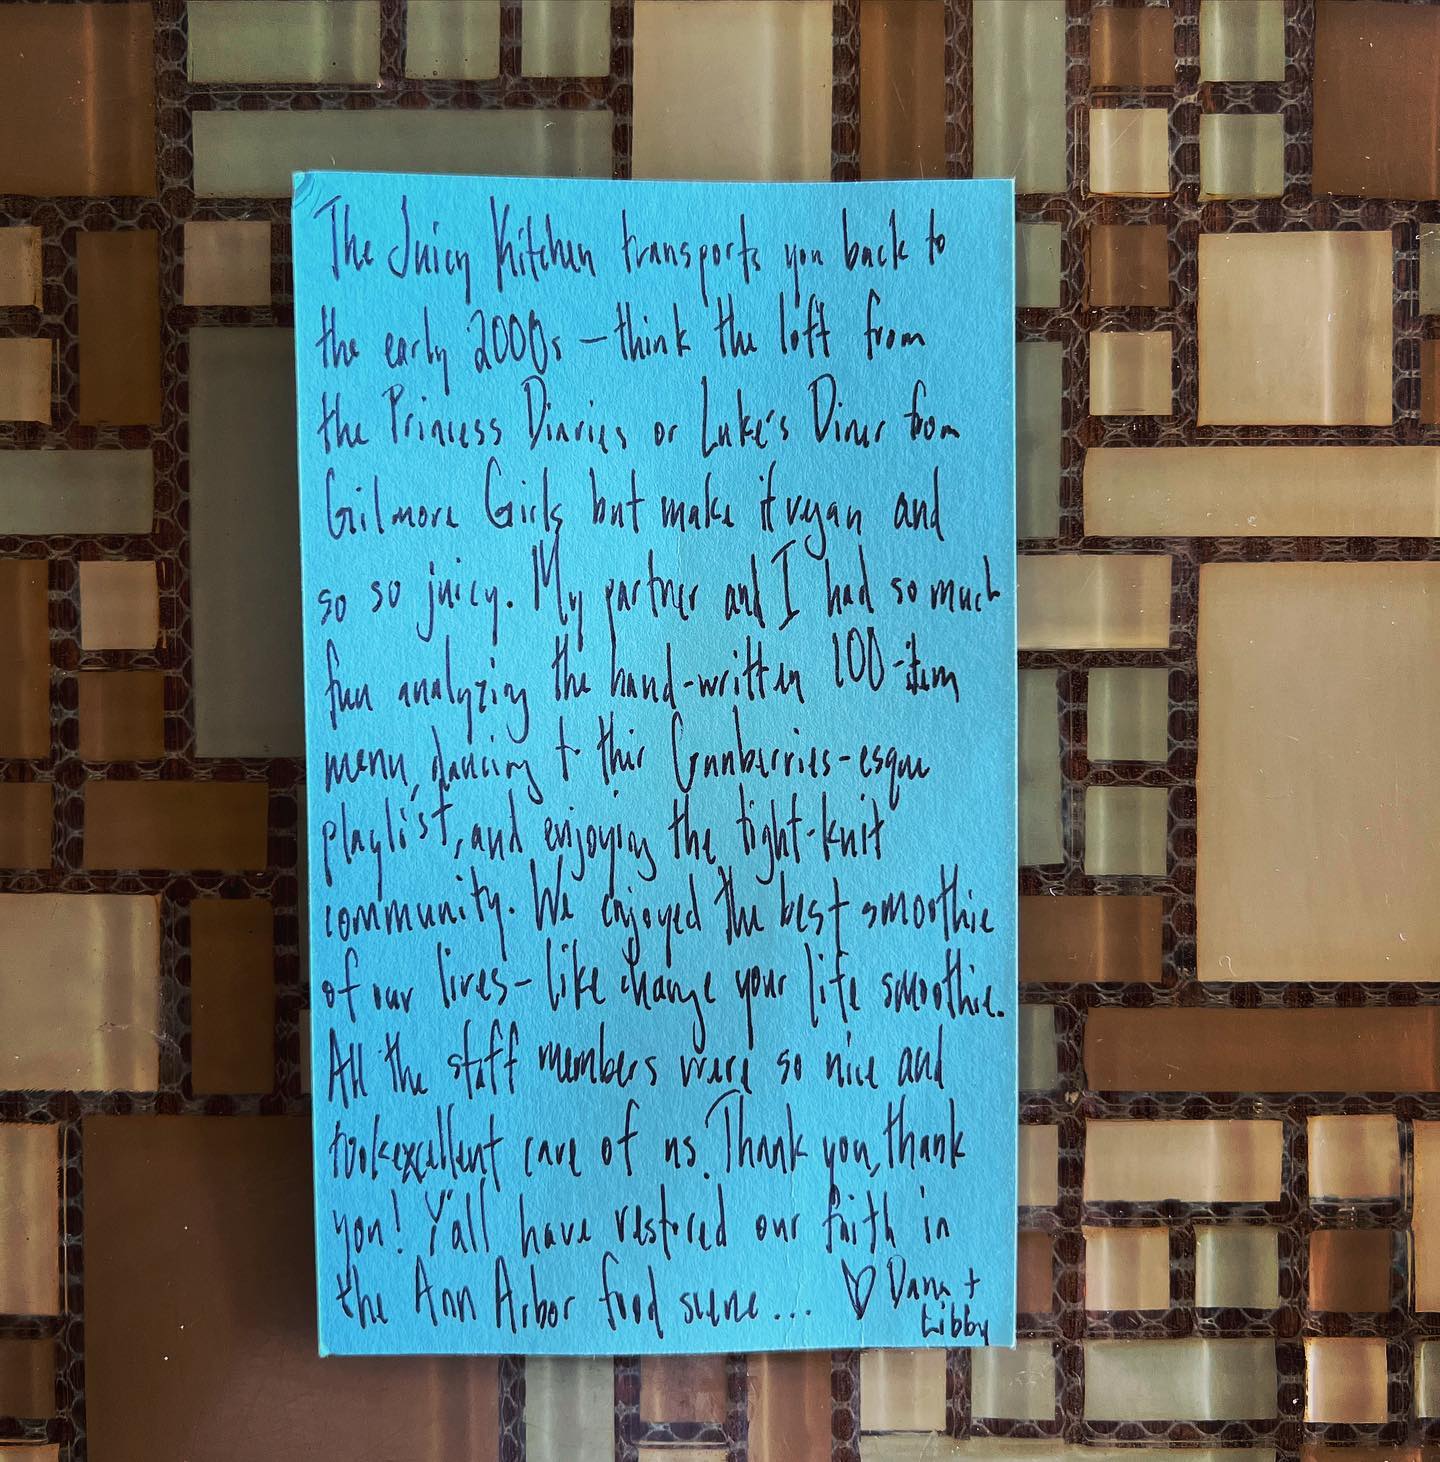 The Juicy Kitchen transports you back to
the early 2000s – think the loft from
the Princess Diaries or Luke's Diner from
Gilmore Girls but make it vegan and
so so juicy. My partner and I had so much
fun analyzing the hand-written 100-item
menu, dancing to their Cranberries-esque
playlist, and enjoying the tight-knit
community. We enjoyed the best smoothie
of our lives – like change your life smoothie.
All the staff members were so nice and
took excellent care of us. Thank you, thank
you! Y'all have restored our faith in
the Ann Arbor food scene... ♡ Dana +
Libby